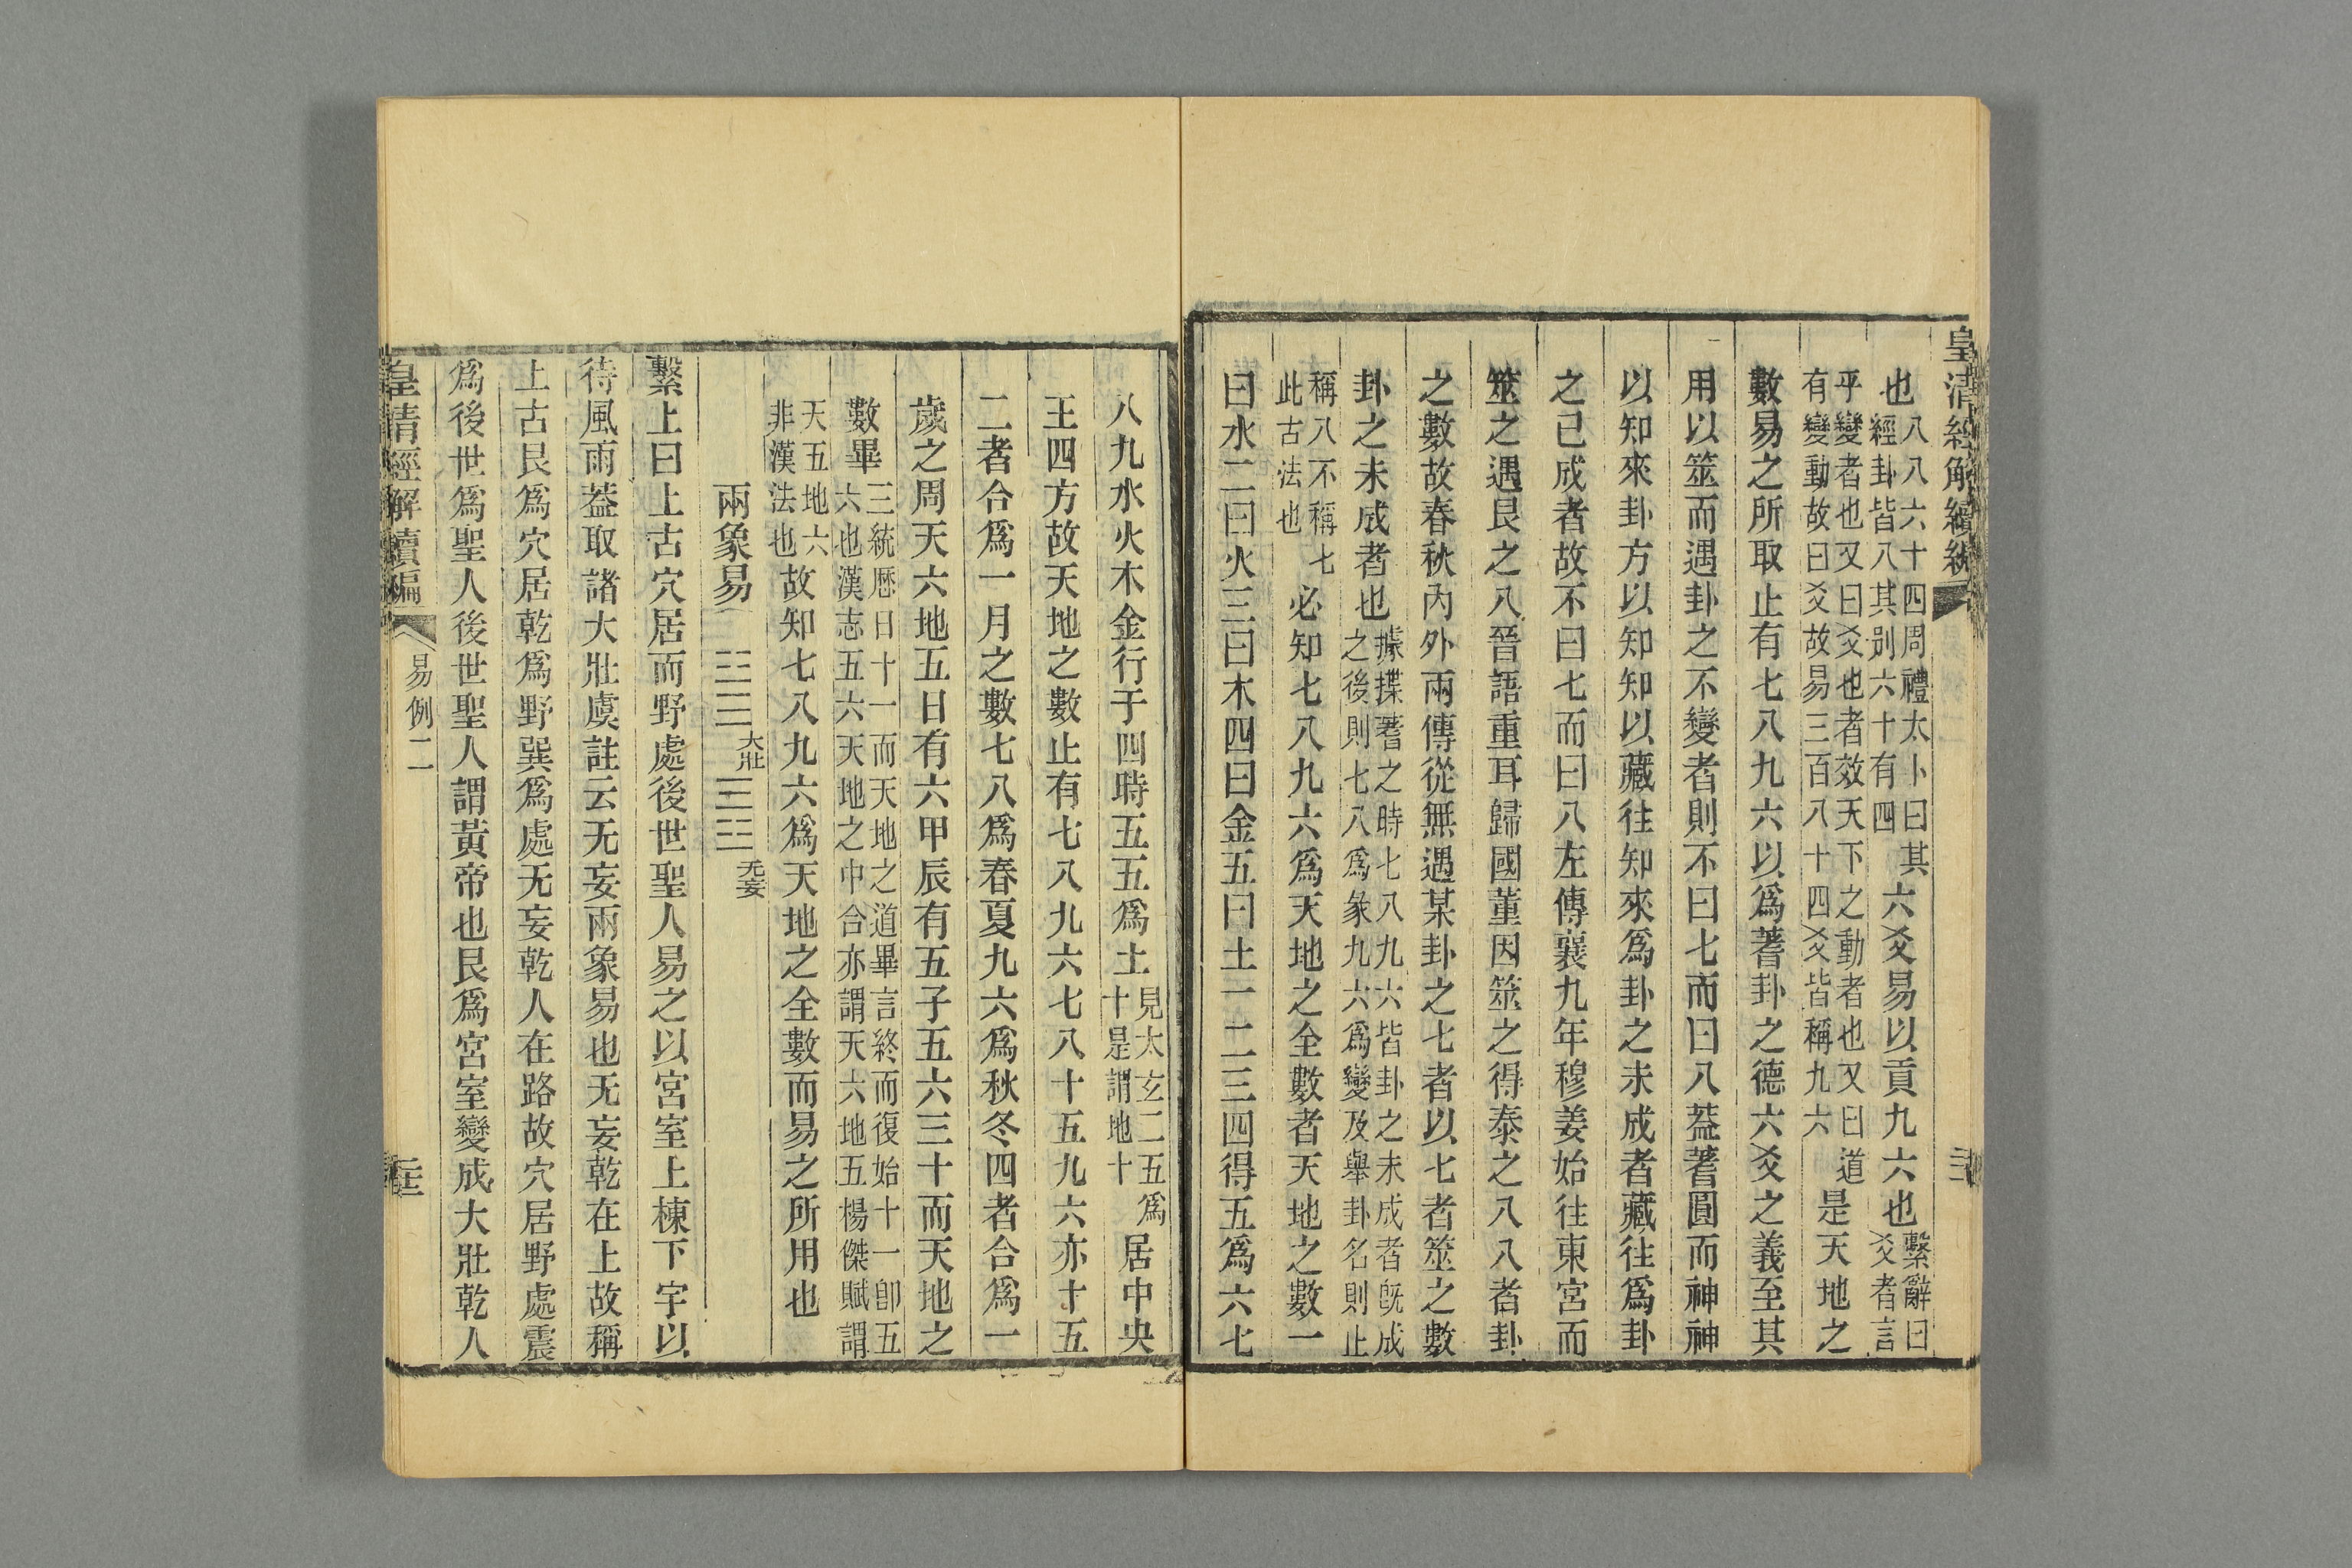 皇清經解續編
也八八六十四周禮太卜曰其經卦皆八其別六十有四六爻易以貢九六也繫辭曰爻者言
乎變者也又曰爻也者效天下之動者也又曰道有變動故曰爻故易三百八十四爻皆稱九六是天地之
數易之所取止有七八九六以爲蓍卦之德六爻之義至其
用以筮而遇卦之不變者則不曰七而曰八葢蓍圓而神神
以知來卦方以知知以藏往知來爲卦之未成者藏往爲卦
之已成者故不曰七而曰八左傳襄九年穆姜始往東宮而
筮之遇艮之八晉語重耳歸國董因筮之得泰之八八者卦
之數故春秋內外兩傳從無遇某卦之七者以七者筮之數
卦之未成者也據揲蓍之時七八九六皆卦之未成者旣成之後則七八爲彖九六爲變及舉卦名則止
稱八不稱七此古法也必知七八九六爲天地之全數者天地之數一
曰水二曰火三曰木四曰金五曰土一二三四得五爲六七
八九水火木金行于四時五五爲土見太玄二五爲十是謂地十居中央
王四方故天地之數止有七八九六七八十五九六亦十五
二者合爲一月之數七八爲春夏九六爲秋冬四者合爲一
歲之周天六地五日有六甲辰有五子五六三十而天地之
數畢三統歷曰十一而天地之道畢言終而復始十一卽五六也漢志五六天地之中合亦謂天六地五楊傑賦謂
天五地六非漢法也故知七八九六爲天地之全數而易之所用也
兩象易 大壯 无妄
繫上曰上古穴居而野處後世聖人易之以宮室上棟下宇以
待風雨葢取諸大壯虞註云无妄兩象易也无妄乾在上故稱
上古艮爲穴居乾爲野巽爲處无妄乾人在路故穴居野處震
爲後世爲聖人後世聖人謂黃帝也艮爲宮室變成大壯乾人
皇清經解續編 易例二